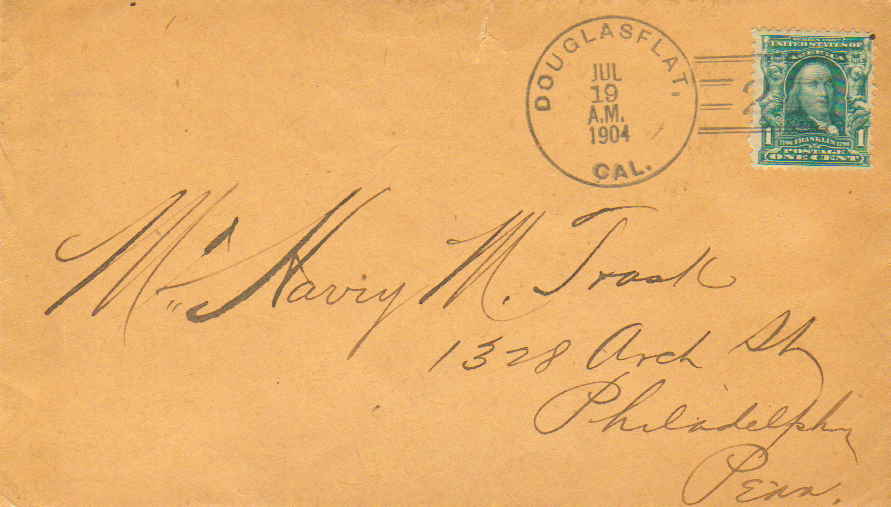 DOUGLASFLAT.
JUL
19
A.M.
1904
CAL.
2
UNITED STATES OF
AMERICA
1 FRANKLIN 1
POSTAGE
ONE CENT
Mr. Harry M. Trask
1328 Arch St
Philadelphia
Penn.